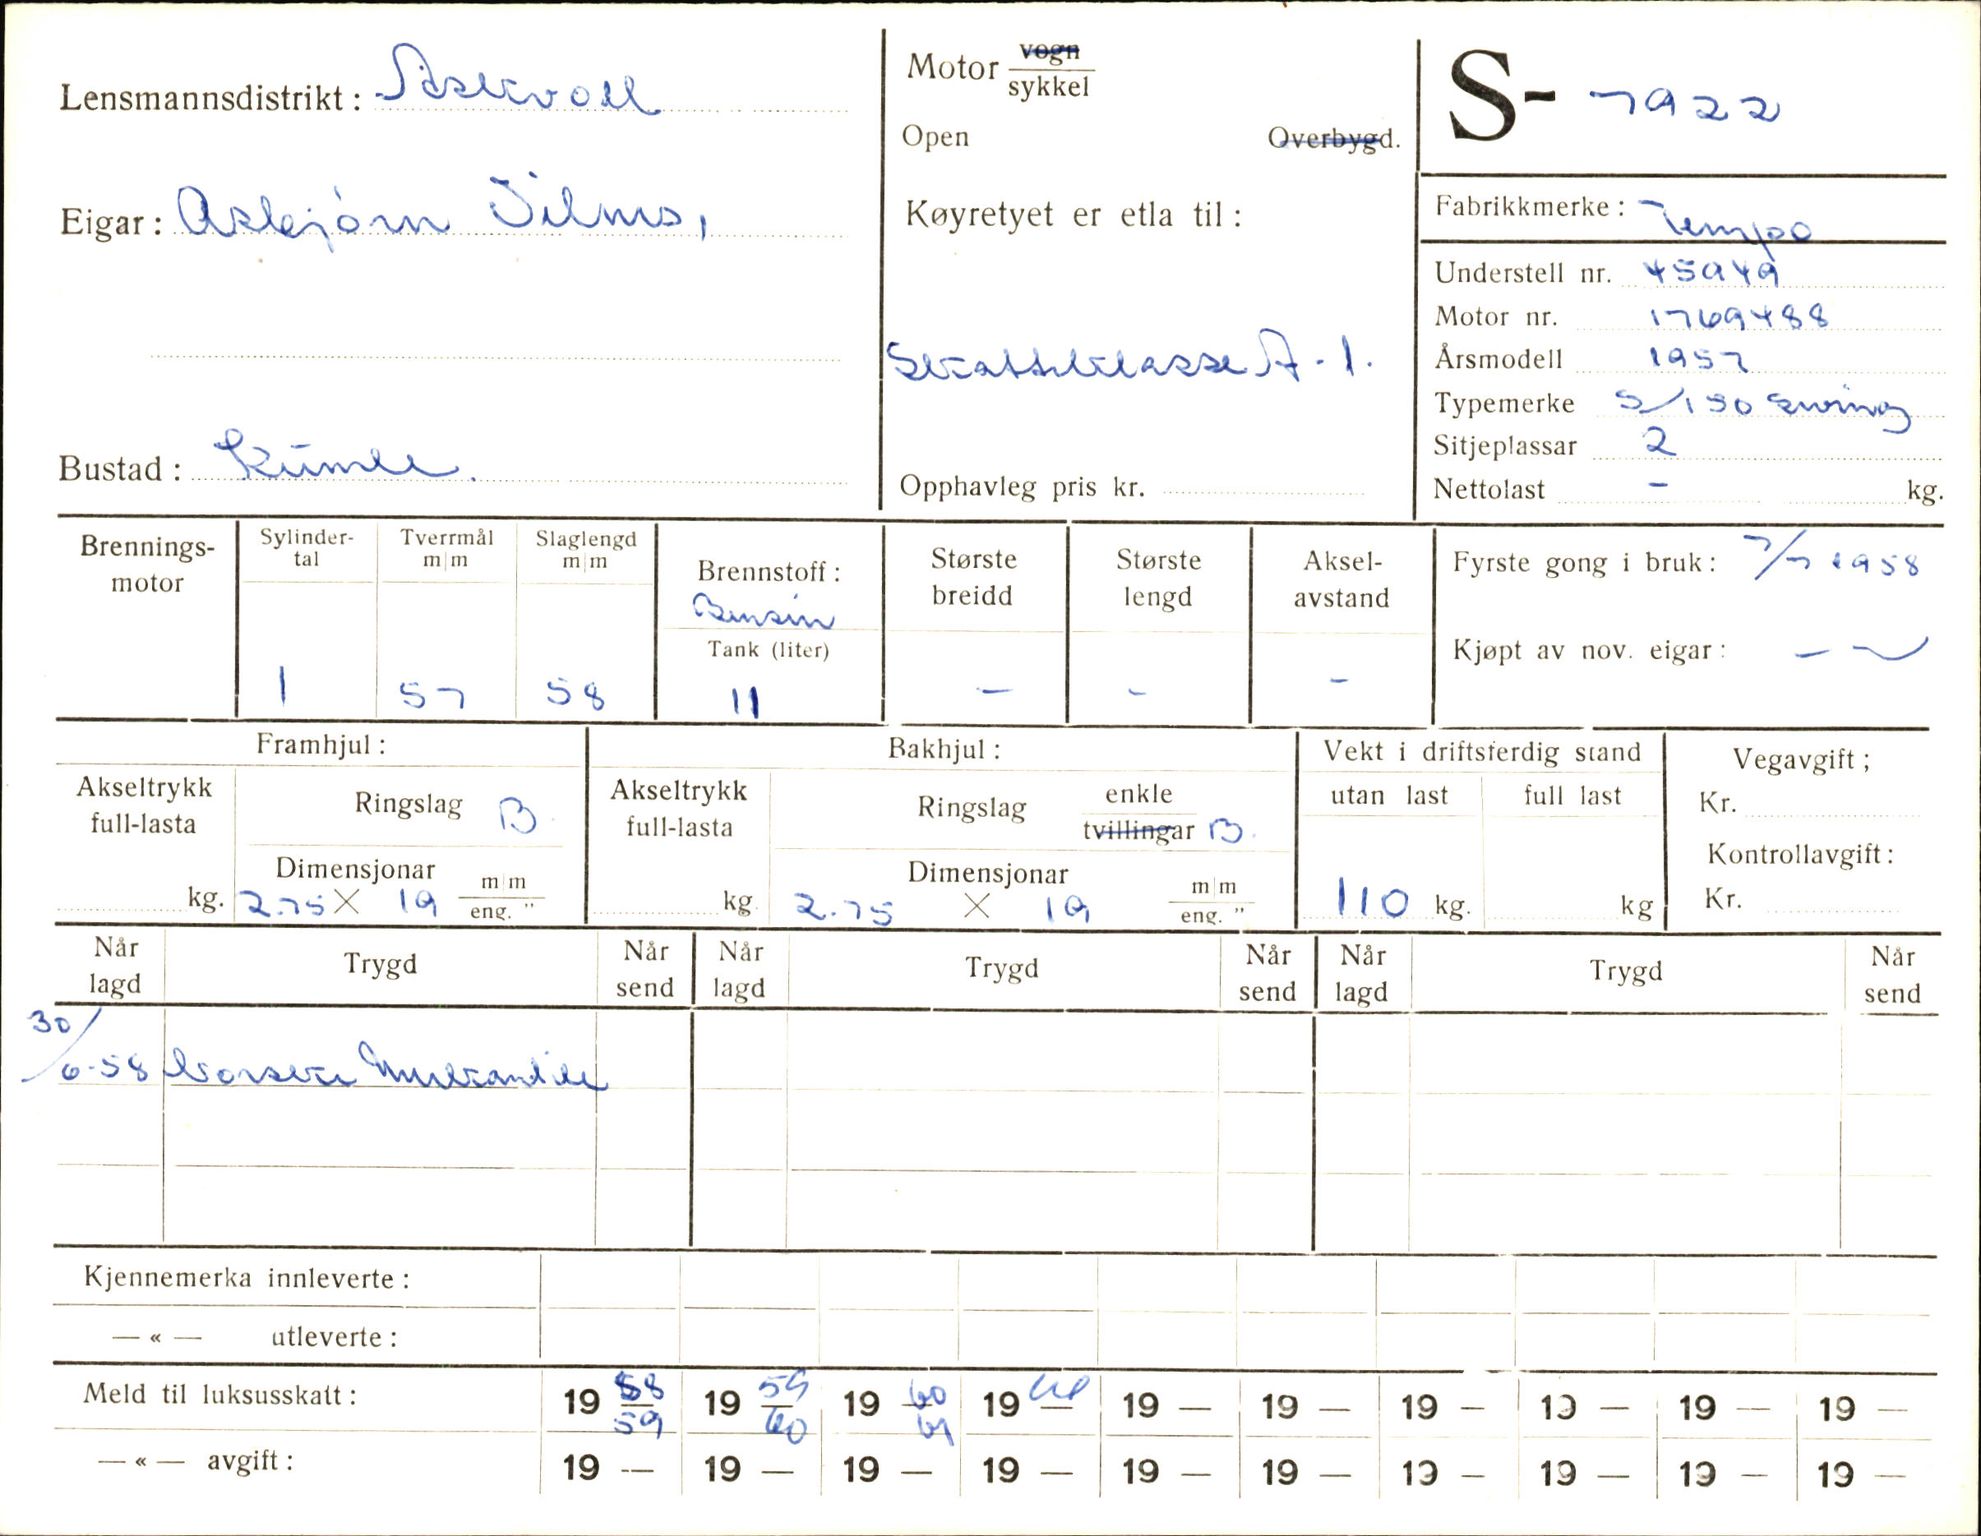 Lensmannsdistrikt: Askvoll
Motor vogn
sykkel
S- 7922
Open Overbygd.
Eigar: Asbjørn
Køyretyet er etla til:
Fabrikkmerke: Tempo
Understell nr. 45949
Motor nr. 1769488
Skatteklasse A-1.
Årsmodell 1957
Typemerke S/150 Swing
Sitjeplassar 2
Bustad:
Opphavleg pris kr.
Nettolast - kg.
Brennings-
motor
Sylinder-
tal
1
Tverrmål
m|m
57
Slaglengd
m|m
58
Brennstoff:
Bensin
Tank (liter)
11
Største
breidd
-
Største
lengd
-
Aksel-
avstand
-
Fyrste gong i bruk: 7/7 1958
Kjøpt av nov. eigar: -
Framhjul:
Akseltrykk
full-lasta
kg.
Ringslag B
Dimensjonar
2.75 X 19 m|m
eng. "
Bakhjul:
Akseltrykk
full-lasta
kg.
Ringslag enkle
tvillingar B.
Dimensjonar
2.75 X 19 m|m
eng. "
Vekt i driftsferdig stand
utan last full last
110 kg. kg
Vegavgift;
Kr.
Kontrollavgift:
Kr.
Når
lagd Trygd Når
send Når
lagd Trygd Når
send Når
lagd Trygd Når
send
30/6-58 Norske Merkantile
Kjennemerka innleverte:
— « — utleverte:
Meld til luksusskatt: 19 58/59 19 59/60 19 60/61 19 — 19 — 19 — 19 — 19 — 19 — 19 —
— « — avgift: 19 — 19 — 19 — 19 — 19 — 19 — 19 — 19 — 19 — 19 —